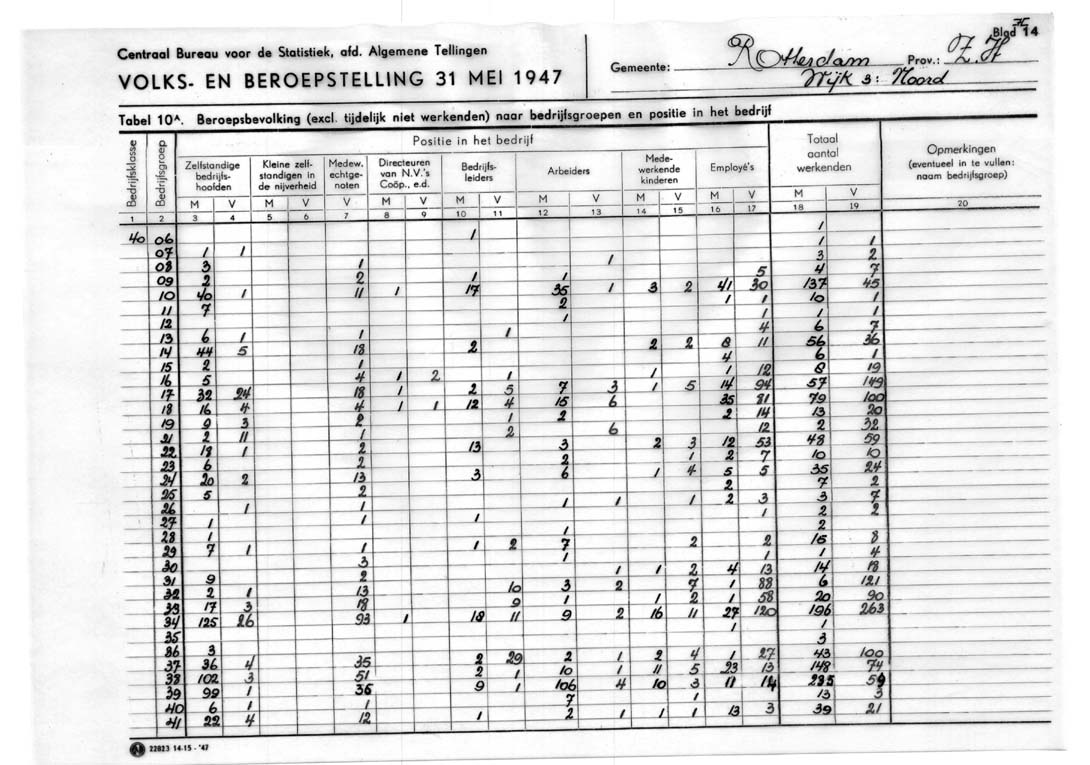 Blad 14
Centraal Bureau voor de Statistiek, afd. Algemene Tellingen
VOLKS- EN BEROEPSTELLING 31 MEI 1947
Gemeente: Rotterdam Prov.: Z.H
Wijk 3: Noord
Tabel 10ᴬ. Beroepsbevolking (excl. tijdelijk niet werkenden) naar bedrijfsgroepen en positie in het bedrijf
Bedrijfsklasse
Bedrijfsgroep
Positie in het bedrijf
Zelfstandige bedrijfs- hoofden
Kleine zelf- standigen in de nijverheid
Medew. echtge- noten
Directeuren van N.V.'s Coöp., e.d.
Bedrijfs- leiders
Arbeiders
Mede- werkende kinderen
Employé's
Totaal aantal werkenden
Opmerkingen (eventueel in te vullen: naam bedrijfsgroep)
M V M V V M V M V M V M V M V M V
1 2 3 4 5 6 7 8 9 10 11 12 13 14 15 16 17 18 19 20
40 06 1 1
07 1 1 1 1
08 3 1 1 3 2
09 2 2 1 1 5 4 7
10 40 1 11 1 17 35 1 3 2 41 30 137 45
11 7 2 1 1 10 1
12 1 1 1 1
13 6 1 1 1 4 6 7
14 44 5 18 2 2 2 8 11 56 36
15 2 1 4 6 1
16 5 4 1 2 1 1 1 12 8 19
17 32 24 18 1 2 5 7 3 1 5 14 94 57 149
18 16 4 4 1 1 12 4 15 6 35 81 79 100
19 9 3 2 1 2 2 14 13 20
21 2 11 1 2 6 12 2 32
22 18 1 2 13 3 2 3 12 53 48 59
23 6 2 2 1 2 7 10 10
24 20 2 13 3 6 1 4 5 5 35 24
25 5 2 2 7 2
26 1 1 1 1 1 2 3 3 7
27 1 1 1 1 2 2
28 1 1 2
29 7 1 1 1 2 7 2 2 15 8
30 3 1 1 1 4
31 9 2 1 1 2 4 13 14 18
32 2 1 13 10 3 2 7 1 88 6 121
33 17 3 18 9 1 1 2 1 58 20 90
34 125 26 93 1 18 11 9 2 16 11 27 120 196 263
35 1 1
36 3 3
37 36 4 35 2 29 2 1 2 4 1 27 43 100
38 102 3 51 2 1 10 1 11 5 23 13 148 74
39 99 1 36 9 1 106 4 10 3 11 14 235 59
40 6 1 1 7 1 13 3
41 22 4 12 1 2 1 1 1 13 3 39 21
22823 14-15 - '47